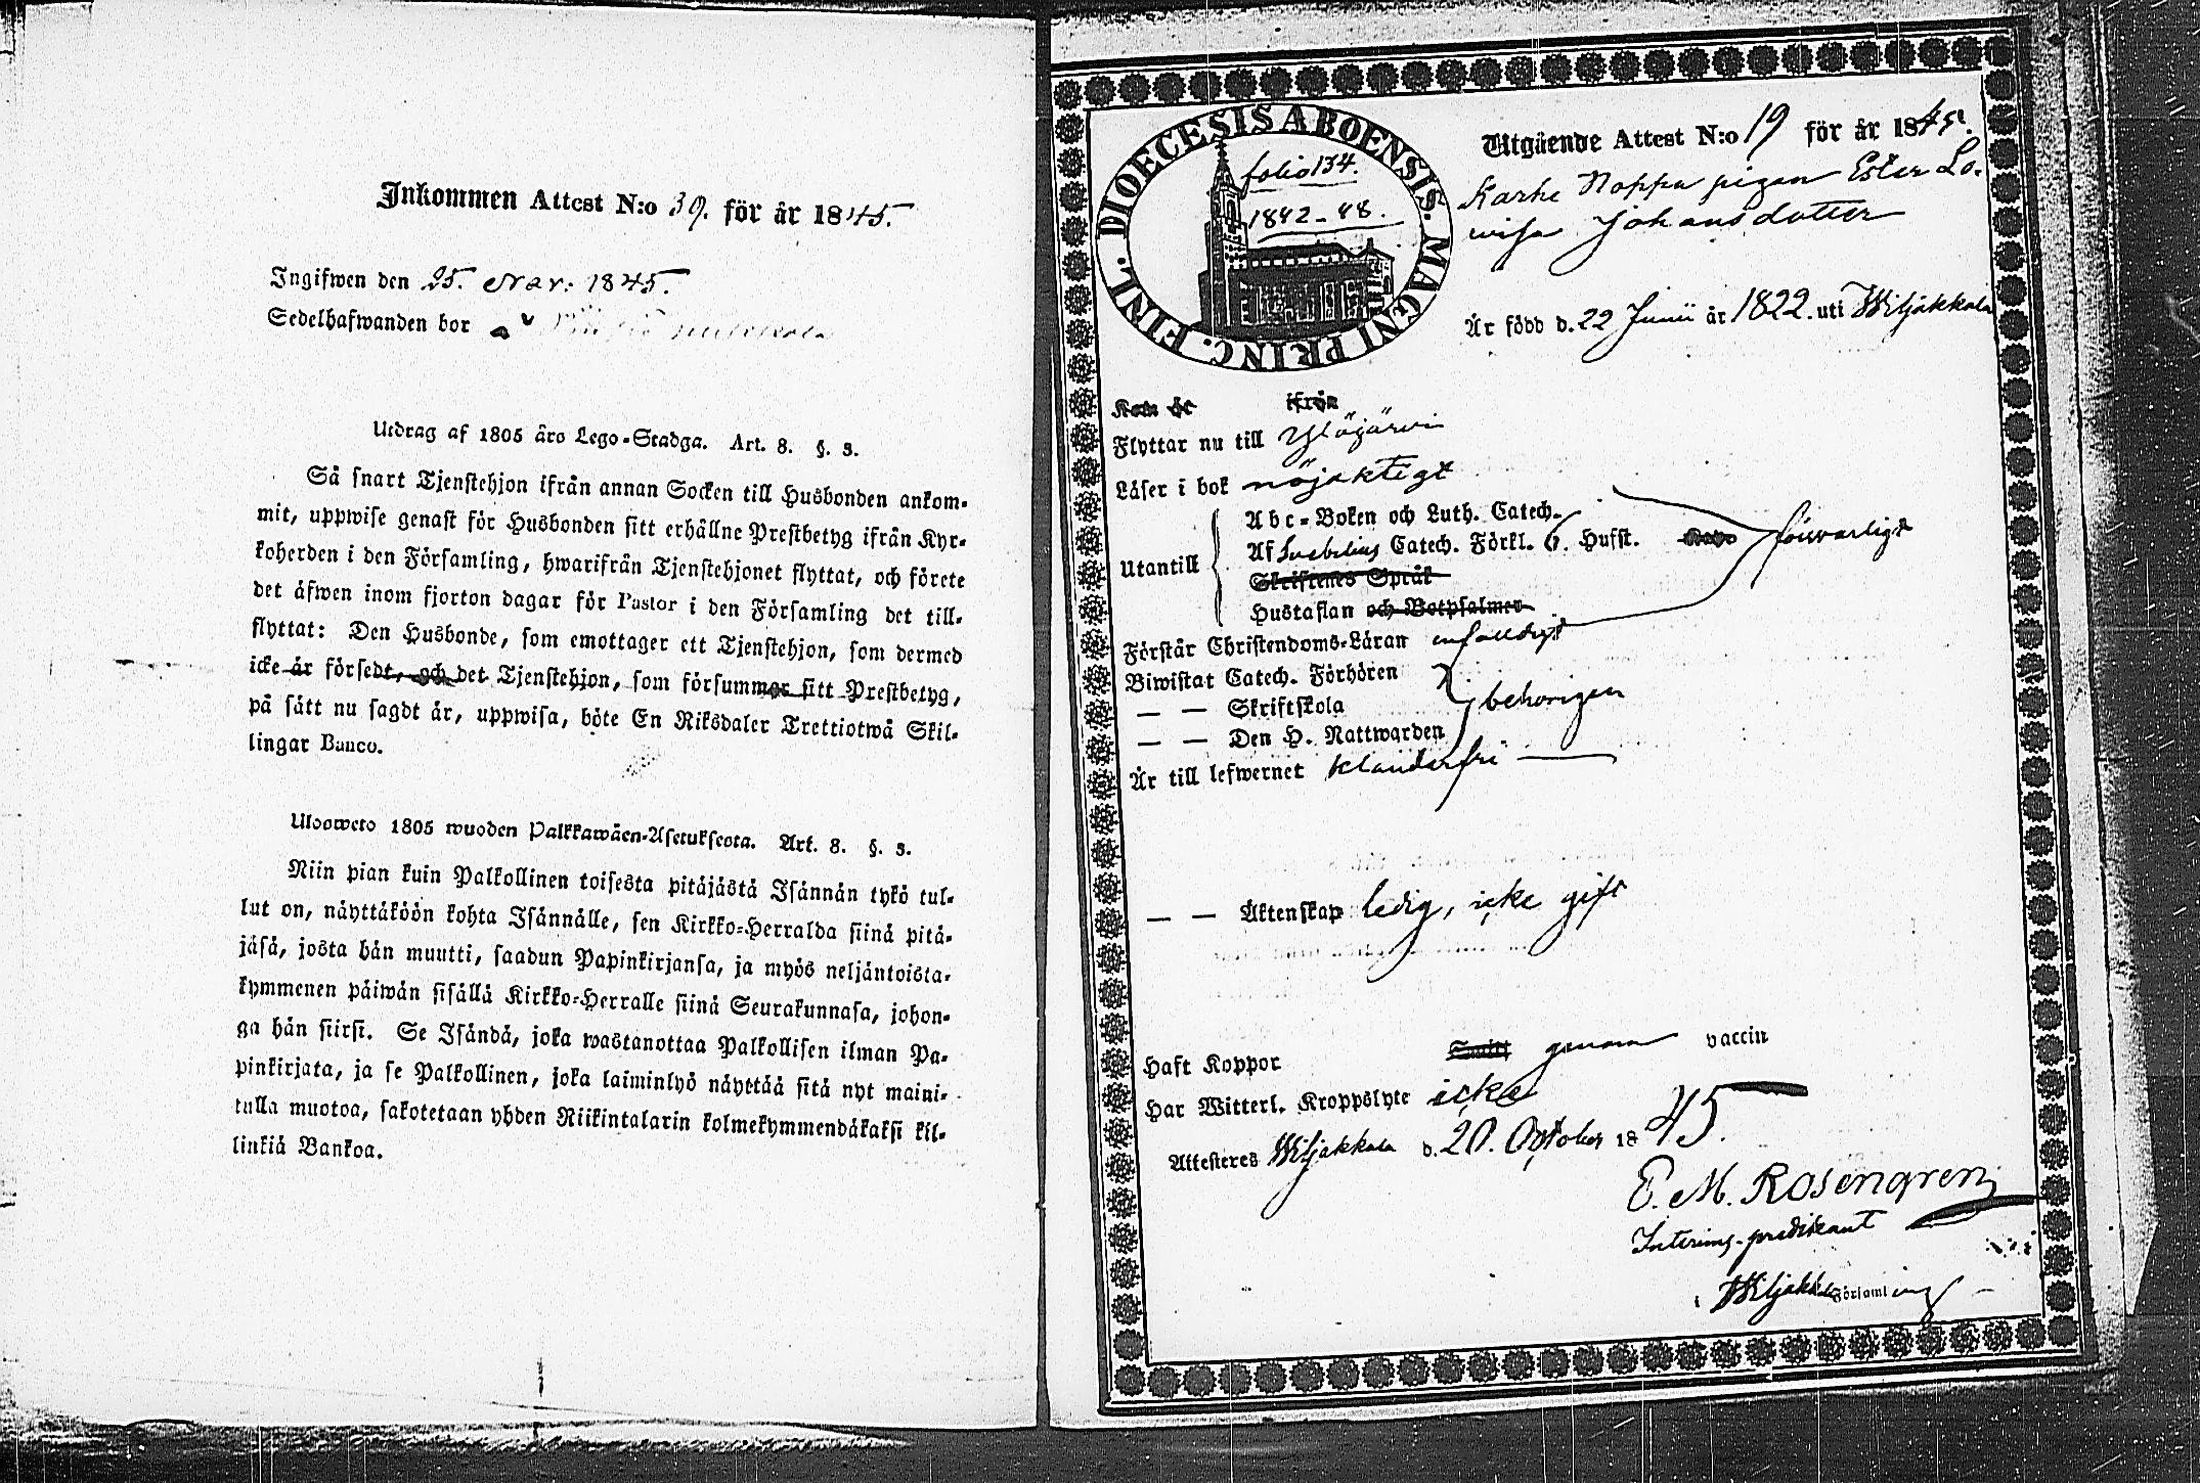 Inkommen Attest N:o 39. för år 1845.
Ingifwen den 25. Nov: 1845.
Sedelhafwanden bor
Utdrag af 1805 års Lego-Stadga. Art. 8. §. 3.
Så snart Tjenstehjon ifrån annan Socken till Husbonden ankom-
mit, uppwise genast för Husbonden sitt erhållne Prestbetyg ifrån Kyr-
koherden i den Församling, hwarifrån Tjenstehjonet flyttat, och förete
det äfwen inom fjorton dagar för Pastor i den Församling det till-
flyttat: Den Husbonde, som emottager ett Tjenstehjon, som dermed
icke är försedt, och det Tjenstehjon, som försummar sitt Prestbetyg,
på sätt nu sagdt är, uppwisa, böte En Riksdaler Trettiotwå Skil-
lingar Banco.
Ulosweto 1805 wuoden Palkkawäen-Asetuksesta. Art. 8. §. 3.
Niin pian kuin Palkollinen toisesta pitäjästä Isännän tykö tul-
lut on, näyttäköön kohta Isännälle, sen Kirkko-Herralda siinä pitä-
jäsä, josta hän muutti, saadun Papinkirjansa, ja myös neljäntoista-
kymmenen päiwän sisällä Kirkko-Herralle siinä Seurakunnasa, johon-
ga hän siirsi. Se Isändä, joka wastanottaa Palkollisen ilman Pa-
pinkirjata, ja se Palkollinen, joka laiminlyö näyttää sitä nyt maini-
tulla muotoa, sakotetaan yhden Riikintalarin kolmekymmendäkaksi kil-
linkiä Bankoa.
DIOECESIS ABOENSIS. MAGNI PRINC. FINL.
folio 134.
1842-48.
Utgående Attest N:o 19 för år 1845.
Karhe Noppa pigan Ester Lo-
wisa Johansdotter
Är född d. 22 Junii år 1822. uti Wiljakkala
Kom år ifrån
Flyttar nu till Ylöjärwi
Läser i bok nöjaktigt
Utantill
Abc-Boken och Luth. Catech.
Af Svebelius Catech. Förkl. 6. Hufst. försvarligt
Skriftenes Språk
Hustaflan och Botpsalmer
Förstår Christendoms-Läran enfaldigt
Biwistat Catech. Förhören
— — Skriftskola behörigen
— — Den H. Nattwarden
Är till lefwernet klanderfri
— — Äktenskap ledig, icke gift
Haft Koppor genom vaccin
Har Witterl. Kroppslyte icke
Attesteres Wiljakkala d. 20. October 1845.
E. M. Rosengren
Interims-predikant
i Wiljakkala Församling